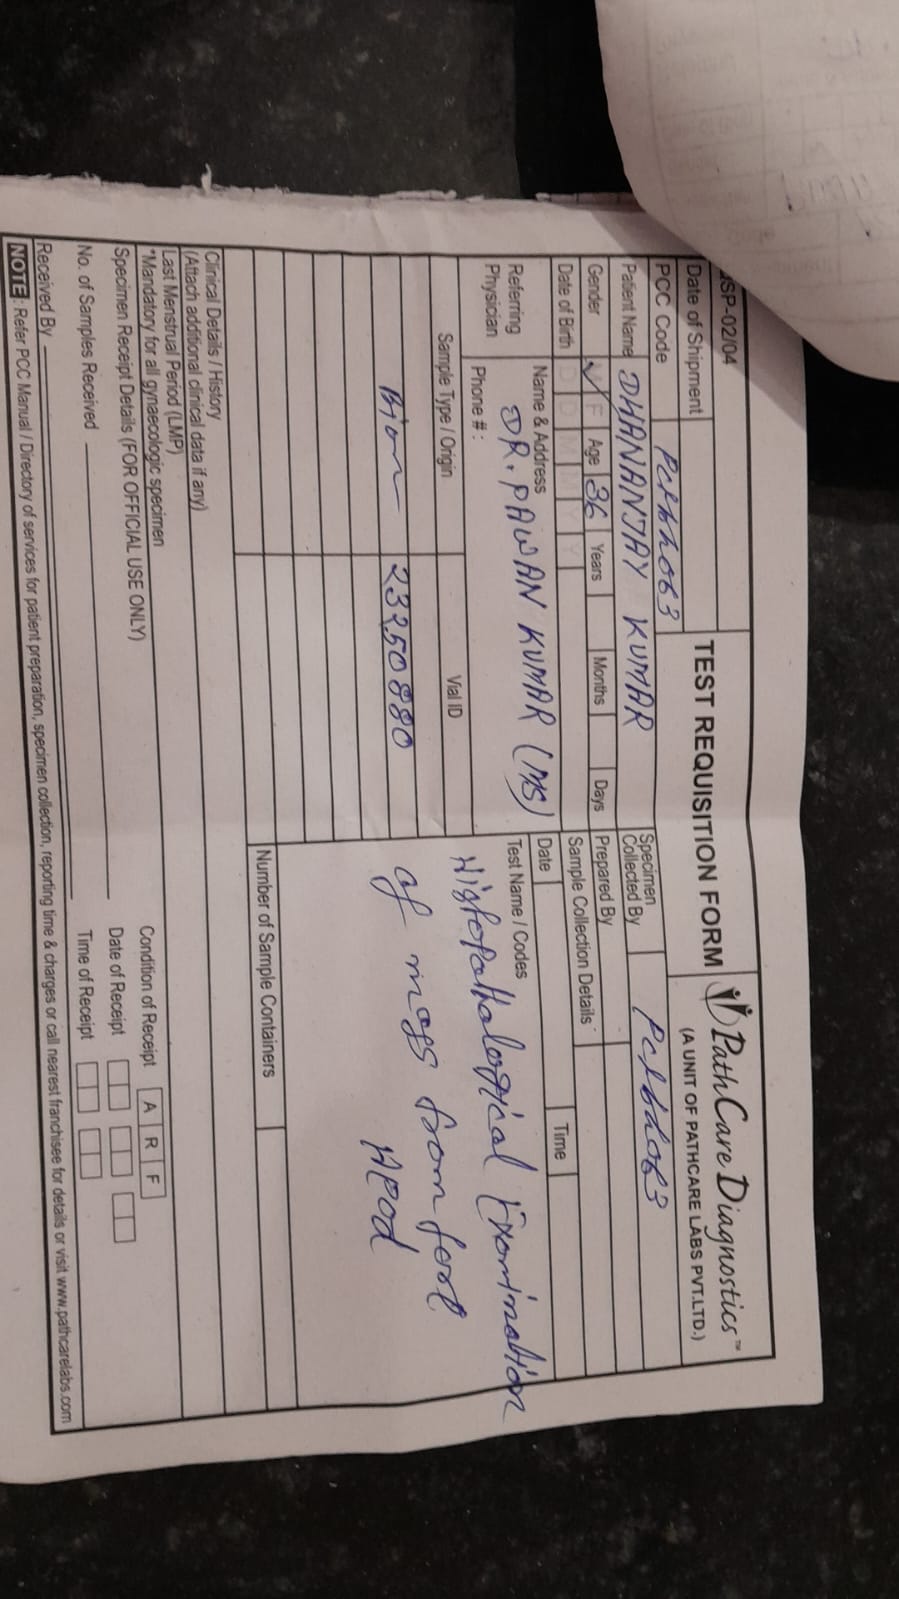 SP-02/04
TEST REQUISITION FORM
PathCare Diagnostics™
(A UNIT OF PATHCARE LABS PVT.LTD.)
Date of Shipment
PCC Code
Specimen Collected By
Patient Name DHANANJAY KUMAR
Prepared By
Gender M F Age 36 Years Months Days
Sample Collection Details
Date of Birth D D M M Y Y
Date Time
Referring Physician
Name & Address
DR. PAWAN KUMAR (MS)
Phone # :
Test Name / Codes
Histopathological Examination
of mass from fore
Head
Sample Type / Origin Vial ID
23250880
Number of Sample Containers
Clinical Details / History
(Attach additional clinical data if any)
Last Menstrual Period (LMP)
*Mandatory for all gynaecologic specimen
Specimen Receipt Details (FOR OFFICIAL USE ONLY)
Condition of Receipt A R F
No. of Samples Received
Date of Receipt
Received By
Time of Receipt
NOTE : Refer PCC Manual / Directory of services for patient preparation, specimen collection, reporting time & charges or call nearest franchisee for details or visit www.pathcarelabs.com